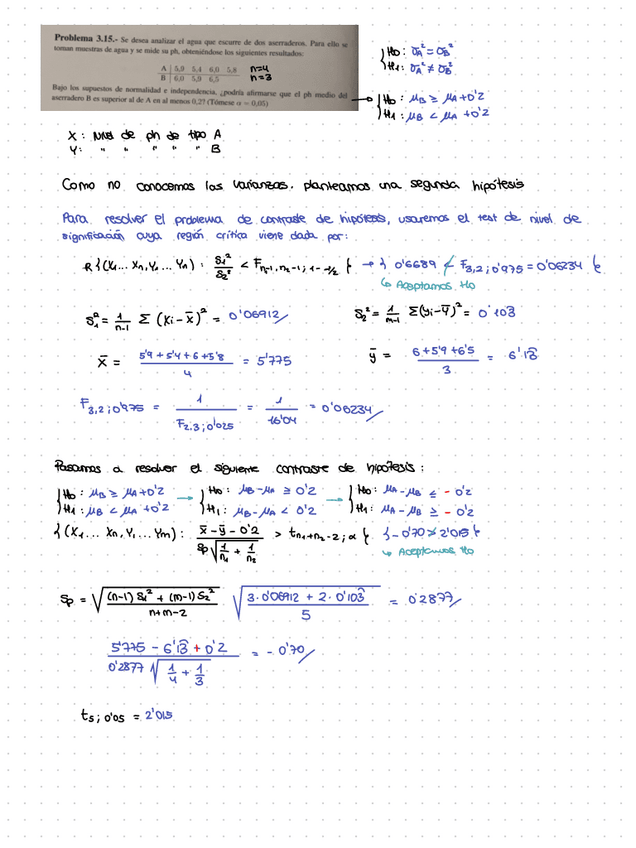 Problema 3.15.- Se desea analizar el agua que escurre de dos aserraderos. Para ello se
toman muestras de agua y se mide su ph, obteniéndose los siguientes resultados:
A | 5,9 5,4 6,0 5,8 n=4
B | 6,0 5,9 6,5 n=3
Bajo los supuestos de normalidad e independencia, ¿podría afirmarse que el ph medio del
aserradero B es superior al de A en al menos 0,2? (Tómese α = 0,05)
{ H0: σA² = σB²
H1: σA² ≠ σB²
→ { H0: μB ≥ μA + 0'2
H1: μB < μA + 0'2
X: Nivel de ph de tipo A
Y: " " " " " B
Como no conocemos las varianzas. planteamos una segunda hipótesis
Para resolver el problema de contraste de hipótesis, usaremos el test de nivel de
significación cuya región crítica viene dada por:
R {(X1 ... Xn, Y1 ... Yn) : S1²/S2² < Fn1-1, n2-1; 1-α/2 } → { 0'6689 ≮ F3,2; 0'975 = 0'06234 }
↳ Aceptamos H0
S1² = 1/(n-1) Σ (xi - x̄)² = 0'06912
S2² = 1/(m-1) Σ(yi - ȳ)² = 0'103
x̄ = (5'9 + 5'4 + 6 + 5'8)/4 = 5'775
ȳ = (6 + 5'9 + 6'5)/3 = 6'13
F3,2; 0'975 = 1/F2,3; 0'025 = 1/16'04 = 0'06234
Pasamos a resolver el siguiente contraste de hipótesis:
{ H0: μB ≥ μA + 0'2 → { H0: μB - μA ≥ 0'2 → { H0: μA - μB ≤ - 0'2
H1: μB < μA + 0'2 H1: μB - μA < 0'2 H1: μA - μB ≥ - 0'2
{(X1 ... Xn, Y1 ... Ym) : (x̄ - ȳ - 0'2)/(Sp √(1/n1 + 1/n2)) > tn1+n2-2; α } { -0'70 ≯ 2'015 }
↳ Aceptamos H0
Sp = √(((n-1) S1² + (m-1) S2²)/(n+m-2)) √((3·0'06912 + 2·0'103)/5) = 0'2877
(5'775 - 6'13 + 0'2)/(0'2877 √(1/4 + 1/3)) = - 0'70
t5; 0'05 = 2'015